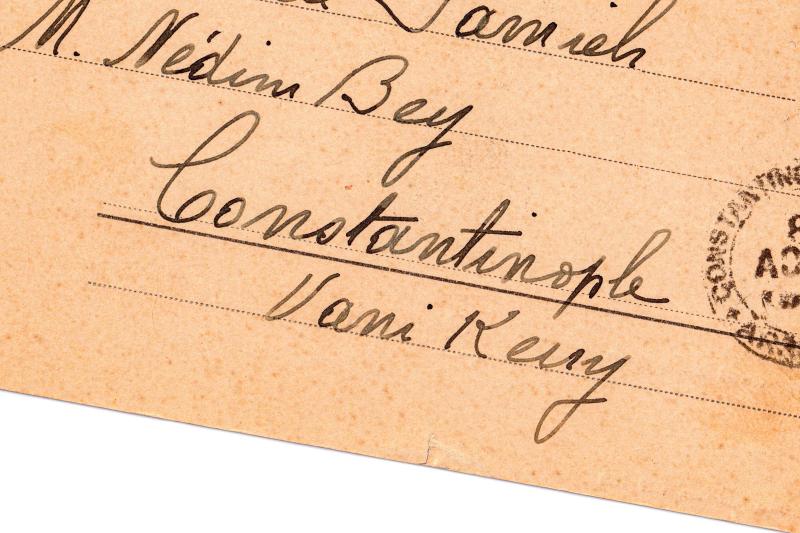 Damieh
M. Nédim Bey
Constantinople
Vani Keuy
CONSTANTIN